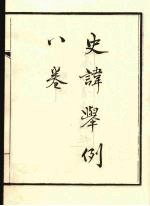 史諱舉例
八卷